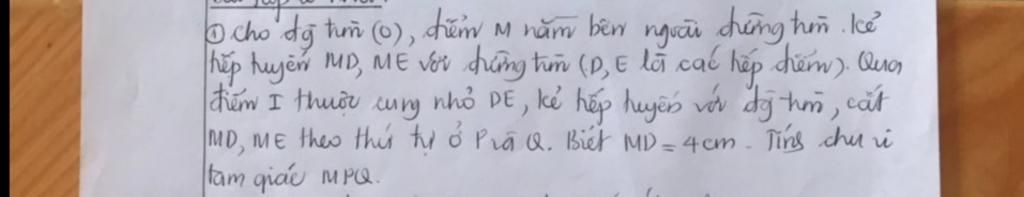 ① Cho đg tròn (O), điểm M nằm bên ngoài đường tròn. Kẻ
tiếp tuyến MD, ME với đường tròn (D, E là các tiếp điểm). Qua
điểm I thuộc cung nhỏ DE, kẻ tiếp tuyến với đg tròn, cắt
MD, ME theo thứ tự ở P và Q. Biết MD = 4 cm. Tính chu vi
tam giác MPQ.